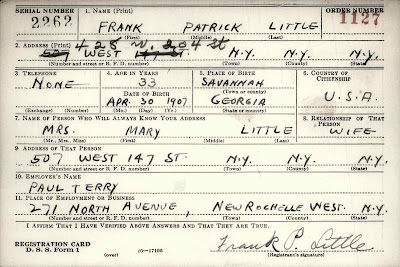 SERIAL NUMBER 1. NAME (Print) ORDER NUMBER
2262 FRANK PATRICK LITTLE 1127
(First) (Middle) (Last)
428 W. 204 St
2. ADDRESS (Print)
507 WEST 147 ST. N.Y. N.Y. N.Y.
(Number and street or R. F. D. number) (Town) (County) (State)
3. TELEPHONE 4. AGE IN YEARS 5. PLACE OF BIRTH 6. COUNTRY OF CITIZENSHIP
NONE 33 SAVANNAH
DATE OF BIRTH (Town or county)
APR. 30 1907 GEORGIA U.S.A.
(Exchange) (Number) (Mo.) (Day) (Yr.) (State or country)
7. NAME OF PERSON WHO WILL ALWAYS KNOW YOUR ADDRESS 8. RELATIONSHIP OF THAT PERSON
MRS. MARY LITTLE WIFE
(Mr., Mrs., Miss) (First) (Middle) (Last)
9. ADDRESS OF THAT PERSON
507 WEST 147 ST. N.Y. N.Y. N.Y.
(Number and street or R. F. D. number) (Town) (County) (State)
10. EMPLOYER'S NAME
PAUL TERRY
11. PLACE OF EMPLOYMENT OR BUSINESS
271 NORTH AVENUE, NEW ROCHELLE WEST. N.Y.
(Number and street or R. F. D. number) (Town) (County) (State)
I AFFIRM THAT I HAVE VERIFIED ABOVE ANSWERS AND THAT THEY ARE TRUE.
REGISTRATION CARD
D. S. S. Form 1 (over) 16—17105 Frank P. Little
(Registrant's signature)